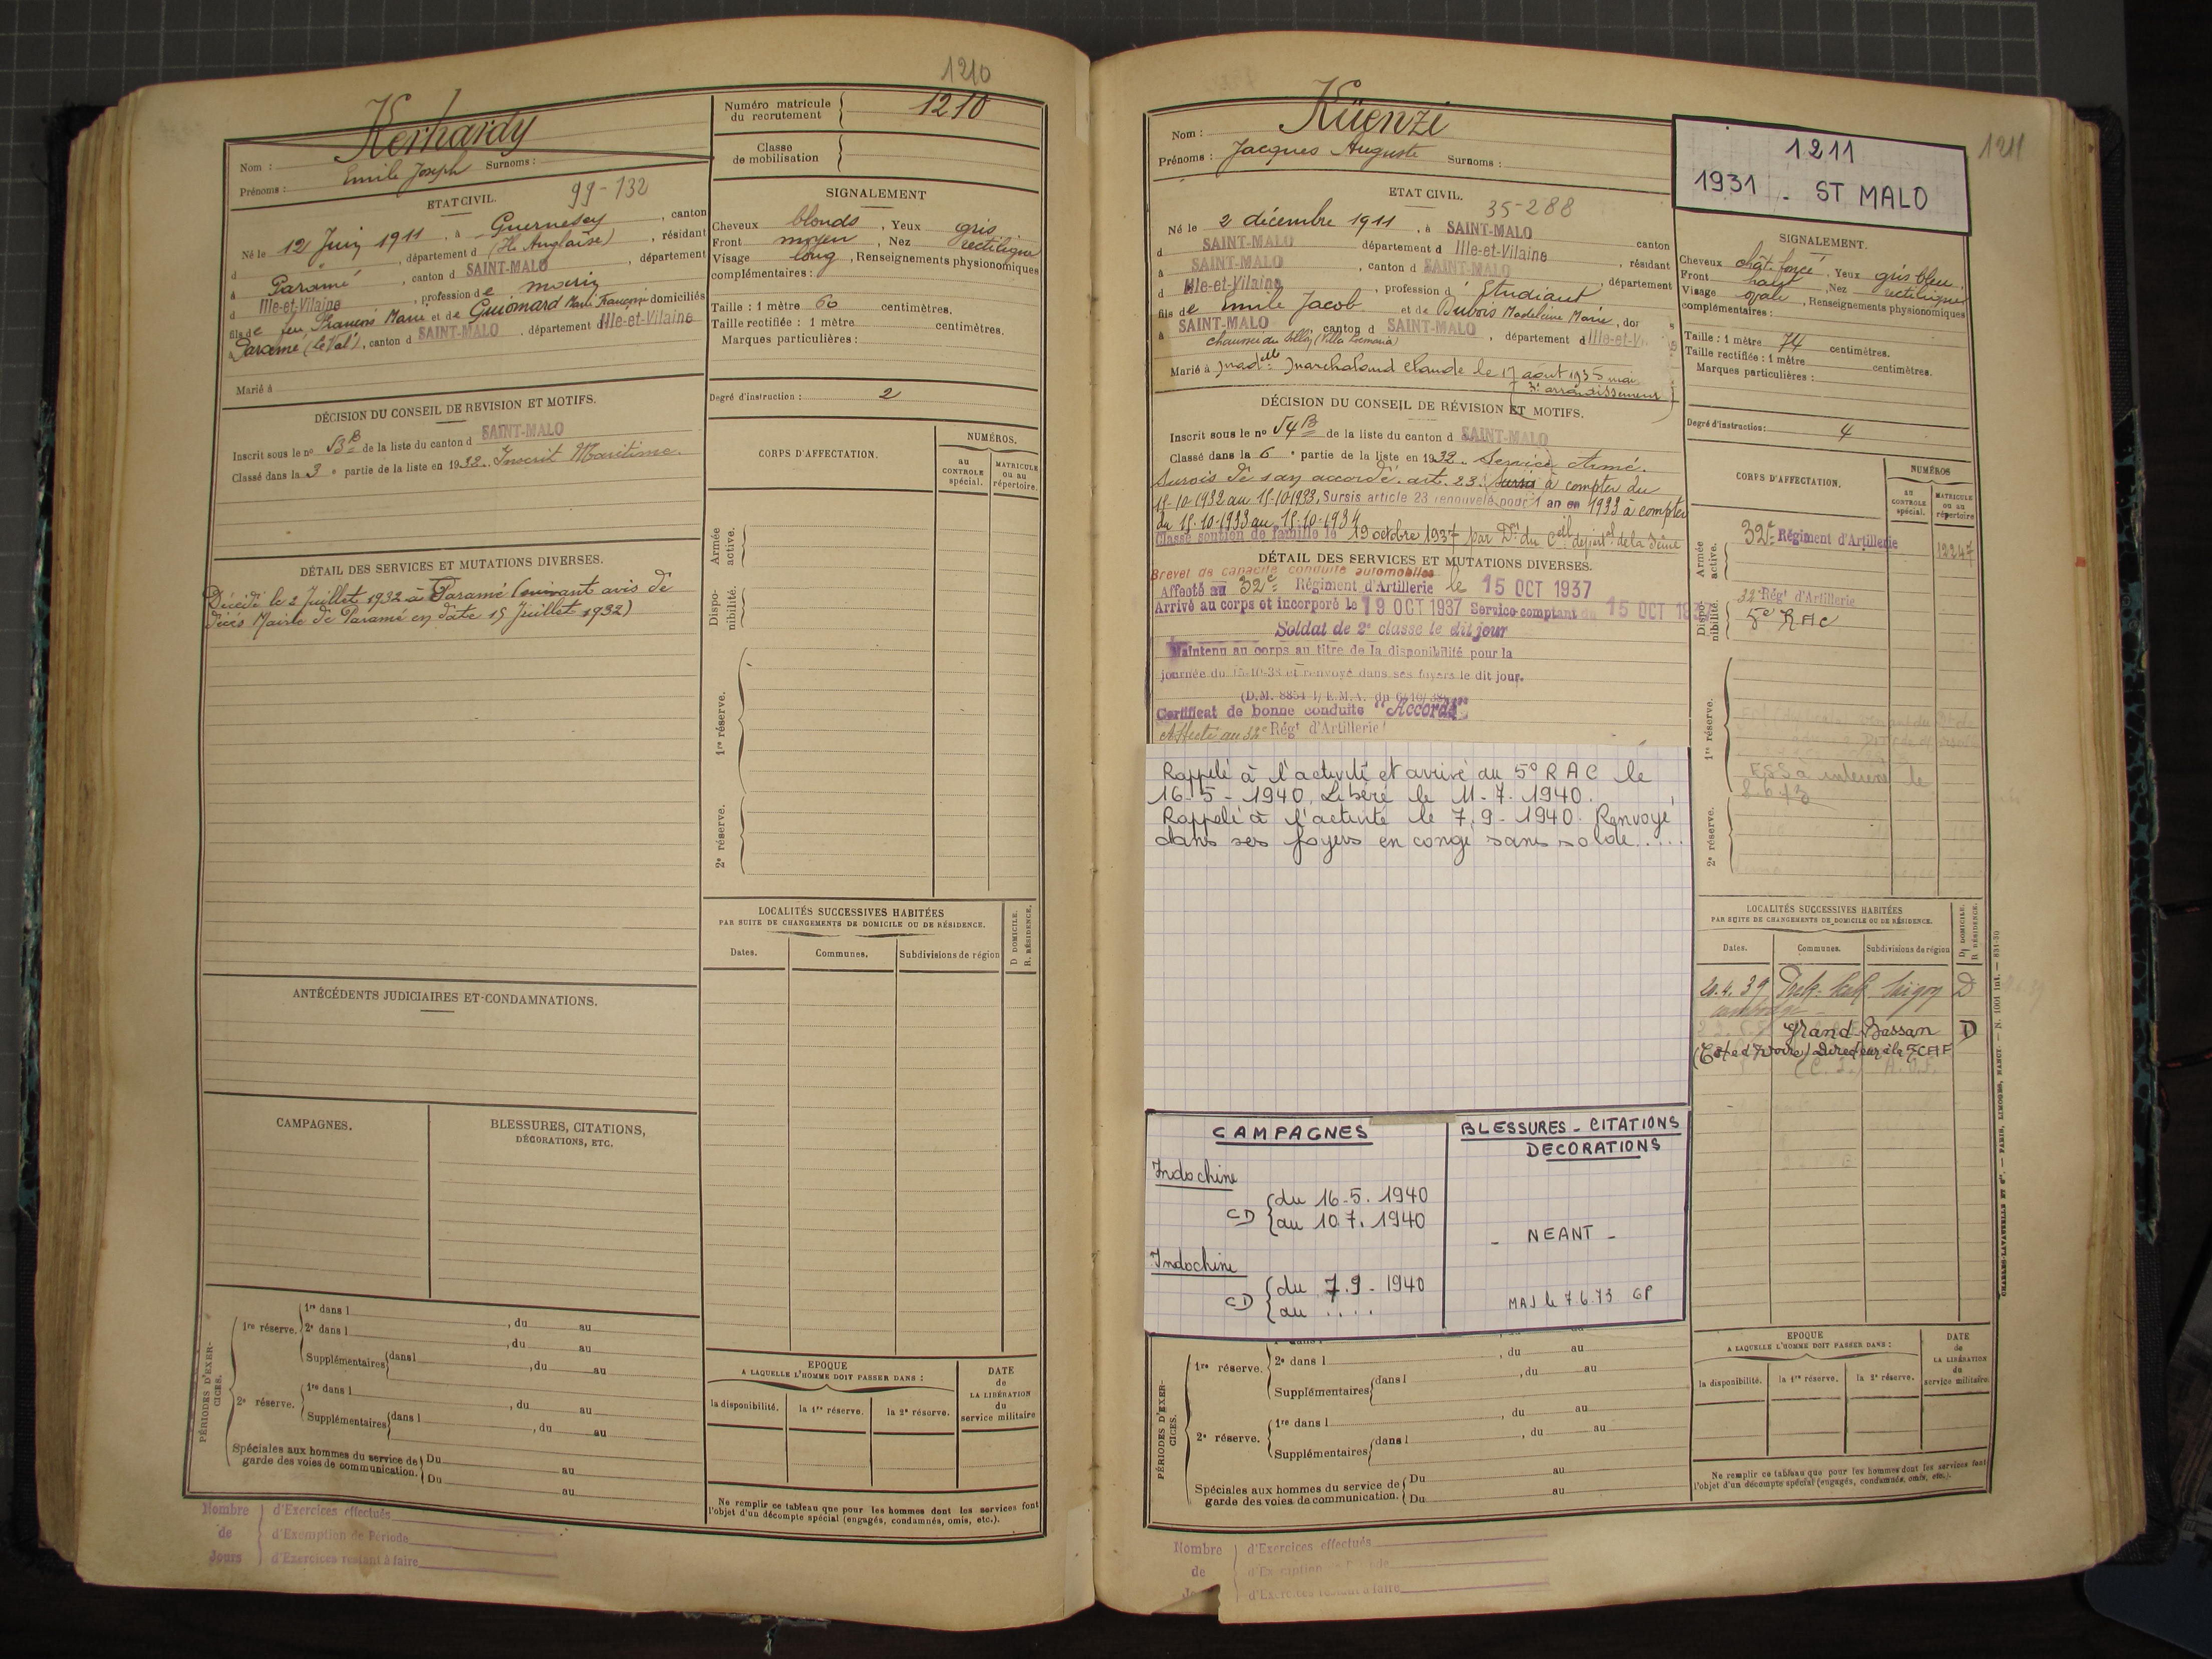 1210
Kerhardy
Nom :
Prénoms : Emile Joseph Surnoms :
Numéro matricule du recrutement 1210
Classe de mobilisation
ETAT CIVIL. 99-132
Né le 12 Juin 1911, à Guernesey, canton
d (Ile Anglaise), département d, résidant
à Paramé, canton d SAINT-MALO, département
d Ille-et-Vilaine, profession de marin
fils de feu François Marie et de Guiomard Marie Françoise domiciliés
à Paramé (le Val), canton d SAINT-MALO, département d Ille-et-Vilaine
Marié à
SIGNALEMENT
Cheveux blonds, Yeux gris
Front moyen, Nez rectiligne
Visage long, Renseignements physionomiques
complémentaires :
Taille : 1 mètre 60 centimètres.
Taille rectifiée : 1 mètre centimètres.
Marques particulières :
Degré d'instruction : 2
DÉCISION DU CONSEIL DE REVISION ET MOTIFS.
Inscrit sous le no 53 B de la liste du canton d SAINT-MALO
Classé dans la 3e partie de la liste en 1932. Inscrit Maritime.
DÉTAIL DES SERVICES ET MUTATIONS DIVERSES.
Décédé le 2 Juillet 1932 à Paramé (suivant avis de
décès Mairie de Paramé en date 15 Juillet 1932)
CORPS D'AFFECTATION.
NUMÉROS.
au CONTROLE spécial.
MATRICULE ou au répertoire.
Armée active.
Disponibilité.
1re réserve.
2e réserve.
LOCALITÉS SUCCESSIVES HABITÉES
PAR SUITE DE CHANGEMENTS DE DOMICILE OU DE RÉSIDENCE.
Dates. Communes. Subdivisions de région
D DOMICILE.
R. RÉSIDENCE.
ANTÉCÉDENTS JUDICIAIRES ET CONDAMNATIONS.
CAMPAGNES.
BLESSURES, CITATIONS,
DÉCORATIONS, ETC.
PÉRIODES D'EXERCICES.
1re réserve. 1re dans l, du au
2e dans l, du au
Supplémentaires dans l, du au
2e réserve. 1re dans l, du au
Supplémentaires dans l, du au
Spéciales aux hommes du service de garde des voies de communication. Du au
Du au
EPOQUE
A LAQUELLE L'HOMME DOIT PASSER DANS :
la disponibilité. la 1re réserve. la 2e réserve.
DATE de LA LIBÉRATION du service militaire
Ne remplir ce tableau que pour les hommes dont les services font
l'objet d'un décompte spécial (engagés, condamnés, omis, etc.).
Nombre de Jours
d'Exercices effectués
d'Exemption de Période
d'Exercices restant à faire
1211
Nom : Küenzi
Prénoms : Jacques Auguste Surnoms :
1211
1931 - ST MALO
ETAT CIVIL. 35-288
Né le 2 décembre 1911, à SAINT-MALO canton
d SAINT-MALO département d Ille-et-Vilaine, résidant
à SAINT-MALO, canton d SAINT-MALO, département
d Ille-et-Vilaine, profession d'Etudiant
fils de Emile Jacob et de Dubois Madeleine Marie, dom
à SAINT-MALO canton d SAINT-MALO, département d Ille-et-V
chaussée du Sillon
Marié à Madelle Marchaland Claude le 17 août 1935 mai
3e arrondissement
SIGNALEMENT.
Cheveux chât. foncé. Yeux gris bleu.
Front haut, Nez rectiligne
Visage ovale, Renseignements physionomiques
complémentaires :
Taille : 1 mètre 74 centimètres.
Taille rectifiée : 1 mètre centimètres.
Marques particulières :
Degré d'instruction : 4
DÉCISION DU CONSEIL DE RÉVISION ET MOTIFS.
Inscrit sous le no 54 B de la liste du canton d SAINT-MALO
Classé dans la 6e partie de la liste en 1932. Service Armé.
Sursis de 1 an accordé. art. 23. sursis à compter du
15-10-1932 au 15-10-1933. Sursis article 23 renouvelé pour 1 an en 1933 à compter
du 15-10-1933 au 15-10-1934
Classé soutien de famille le 19 octobre 1937 par Dn du Ceil départal de la Seine
DÉTAIL DES SERVICES ET MUTATIONS DIVERSES.
Brevet de capacité conduite automobiles
Affecté au 32e Régiment d'Artillerie le 15 OCT 1937
Arrivé au corps et incorporé le 19 OCT 1937 Service comptant du 15 OCT 1937
Soldat de 2e classe le dit jour
Maintenu au corps au titre de la disponibilité pour la
journée du 15-10-38 et renvoyé dans ses foyers le dit jour.
Certificat de bonne conduite "Accordé"
Affecté au 32e Régt d'Artillerie
Rappelé à l'activité et arrivé au 5e R A C le
16-5-1940. Libéré le 11-7-1940.
Rappelé à l'activité le 7.9-1940. Renvoyé
dans ses foyers en congé sans solde....
CORPS D'AFFECTATION.
NUMÉROS
au CONTROLE spécial.
MATRICULE ou au répertoire
Armée active. 32e Régiment d'Artillerie
Disponibilité. 32e Régt d'Artillerie
5e RAC
1re réserve.
2e réserve.
LOCALITÉS SUCCESSIVES HABITÉES
PAR SUITE DE CHANGEMENTS DE DOMICILE OU DE RÉSIDENCE.
Dates. Communes. Subdivisions de région
D DOMICILE.
R RÉSIDENCE.
20.4.39 Saïgon D
Cambodge
Grand-Bassan D
(Côte d'Ivoire) Directeur de la
CAMPAGNES
Indochine
CD du 16-5.1940
au 10.7.1940
Indochine
CD du 7.9-1940
au ....
BLESSURES - CITATIONS
DECORATIONS
- NEANT -
MAJ le 7.6.73 GP
PÉRIODES D'EXERCICES.
1re réserve. 2e dans l, du au
Supplémentaires dans l, du au
2e réserve. 1re dans l, du au
Supplémentaires dans l, du au
Spéciales aux hommes du service de garde des voies de communication. Du au
Du au
EPOQUE
A LAQUELLE L'HOMME DOIT PASSER DANS :
la disponibilité. la 1re réserve. la 2e réserve.
DATE de LA LIBÉRATION du service militaire
Ne remplir ce tableau que pour les hommes dont les services font
l'objet d'un décompte spécial (engagés, condamnés, omis, etc.).
CHARLES-LAVAUZELLE ET Cie. — PARIS, LIMOGES, NANCY.
Nombre de
d'Exercices effectués
d'Exercices restant à faire